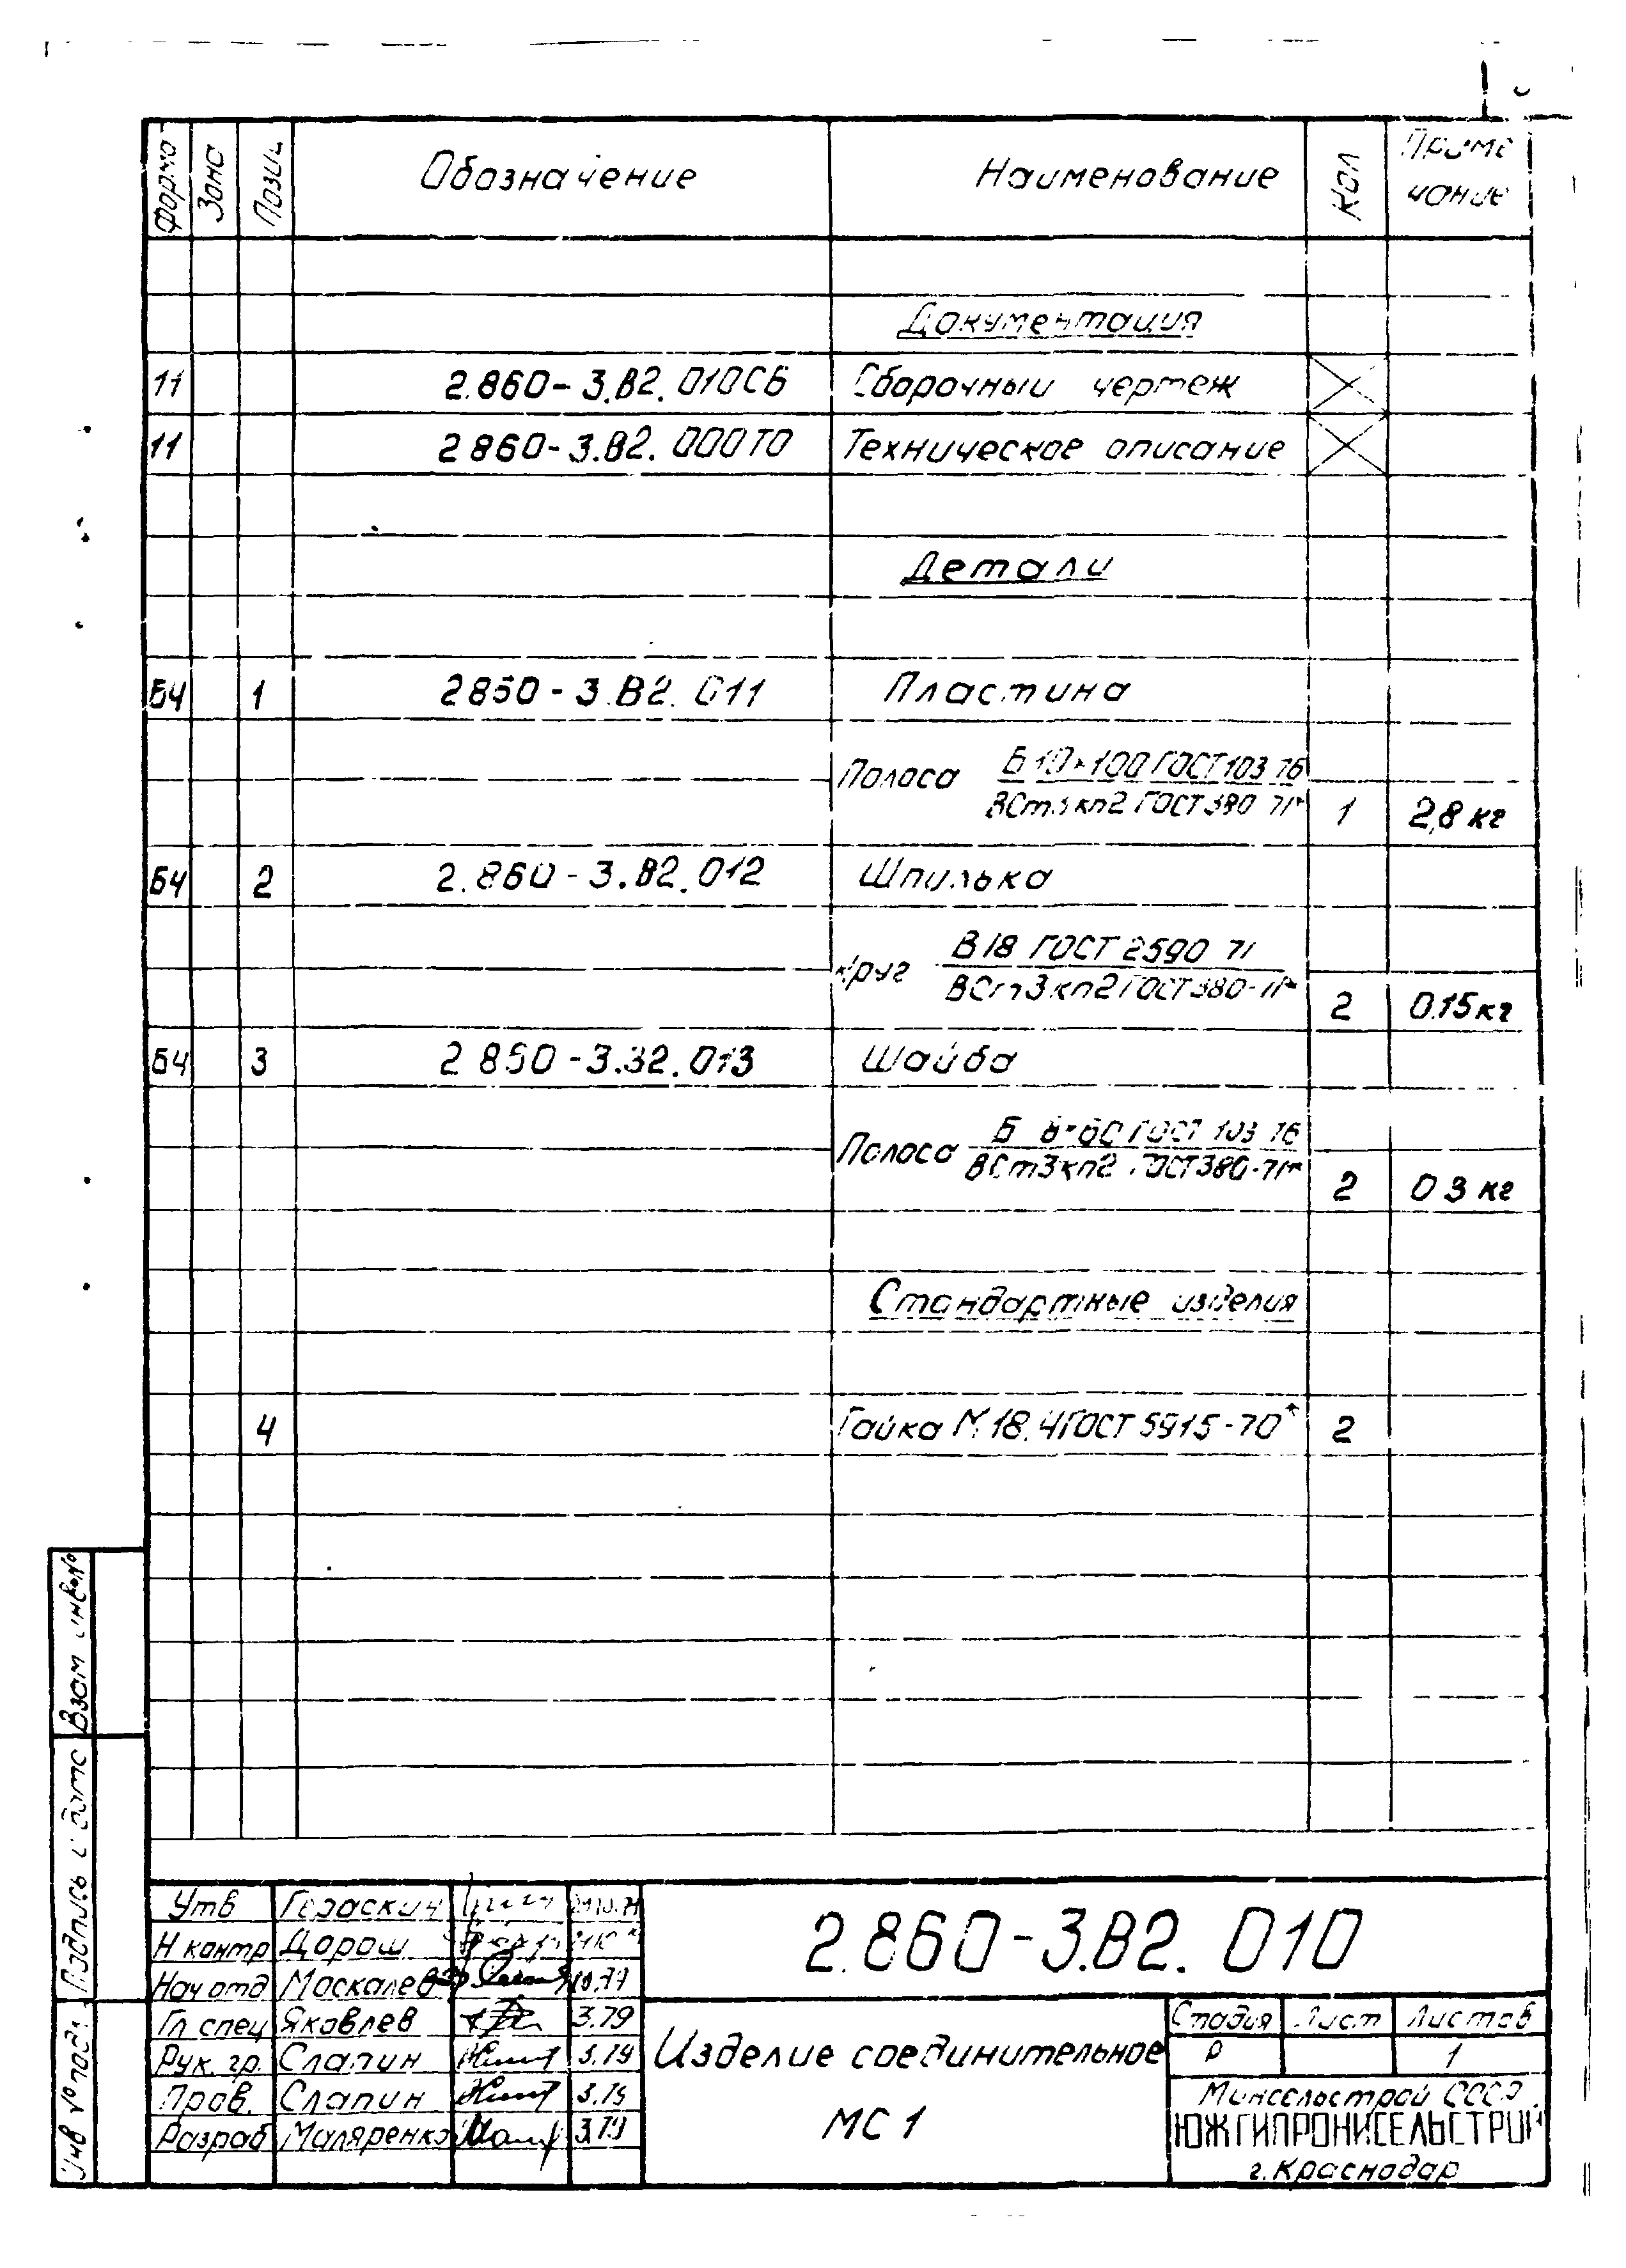 Форма Зона Позиц. Обозначение Наименование Кол Приме
чание
Документация
11 2.860-3.В2.010СБ Сборочный чертеж
11 2 860-3.В2.000ТО Техническое описание
Детали
БЧ 1 2860-3.В2.011 Пластина
Полоса Б 10×100 ГОСТ 103 76
ВСт.3 кп2 ГОСТ 380 71* 1 2,8 кг
БЧ 2 2.860-3.В2.012 Шпилька
Круг В18 ГОСТ 2590 71
ВСт3кп2 ГОСТ 380-71* 2 0.15кг
БЧ 3 2 860-3.В2.013 Шайба
Полоса Б 8×60 ГОСТ 103 76
ВСт3кп2 ГОСТ 380-71* 2 0 3 кг
Стандартные изделия
4 Гайка М.18.4 ГОСТ 5915-70* 2
Взам инв №
Подпись и дата
Инв № подл.
Утв Гераскин
Н контр Дорош
Нач отд Москалев 10.79
Гл спец Яковлев 3.79
Рук. гр. Слапин 3.79
Пров. Слапин 3.79
Разраб Маляренко 3.79
2.860-3.В2.010
Изделие соединительное
МС 1
Стадия Лист Листов
Р 1
Минсельстрой СССР
ЮЖГИПРОНИСЕЛЬСТРОЙ
г.Краснодар